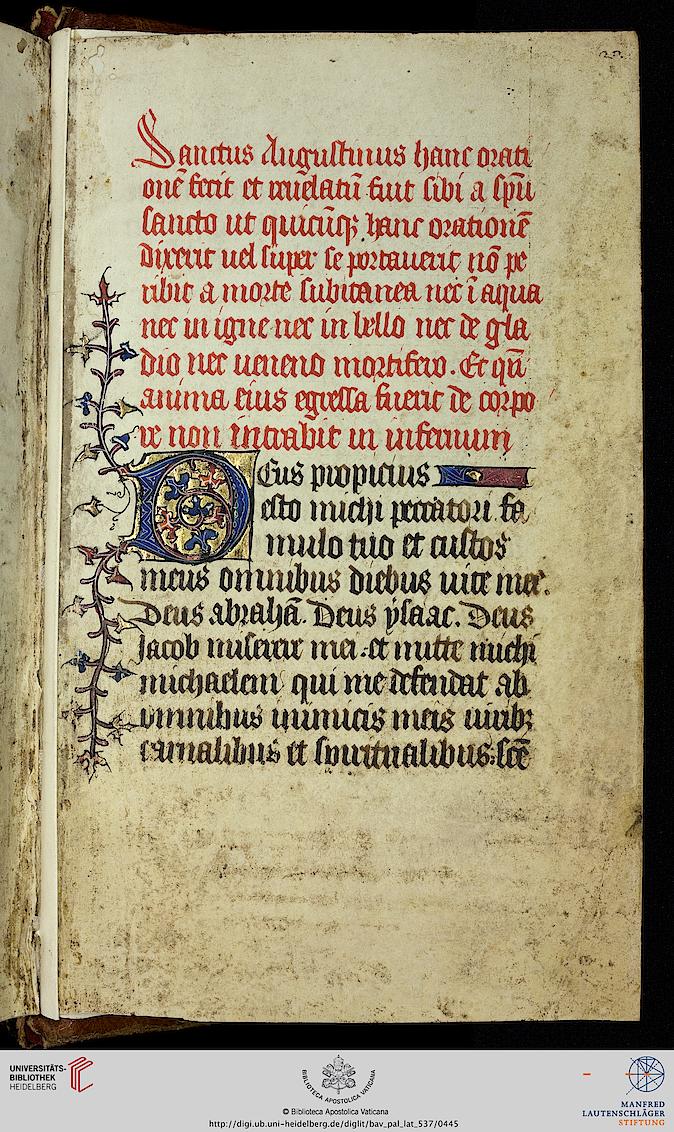 Sanctus Augustinus hanc orati
onē fecit et reuelatū fuit sibi a spū
sancto ut quicūqꝫ hanc orationē
dixerit uel super se portauerit nō pe
ribit a morte subitanea nec ī aqua
nec in igne nec in bello nec de gla
dio nec ueneno mortifero. Et qn̄
anima eius egressa fuerit de corpo
re non intrabit in infernum
Deus propicius
esto michi peccatori fa
mulo tuo et custos
meus omnibus diebus uite mee.
Deus abrahā. Deus ysaac. Deus
Jacob miserere mei. et mitte michi
michaelem qui me defendat ab
omnibus inimicis meis uisibꝫ
carnalibus et spiritualibus. scē
UNIVERSITÄTS-
BIBLIOTHEK
HEIDELBERG
BIBLIOTECA APOSTOLICA VATICANA
© Biblioteca Apostolica Vaticana
http://digi.ub.uni-heidelberg.de/diglit/bav_pal_lat_537/0445
MANFRED
LAUTENSCHLÄGER
STIFTUNG